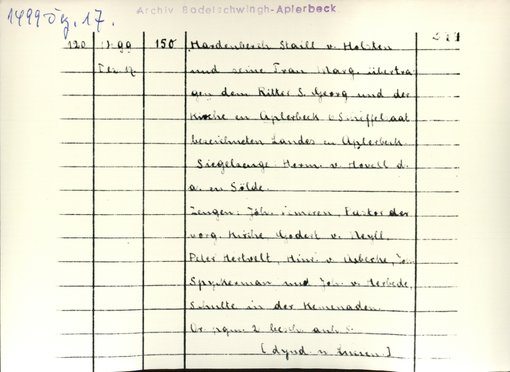 1499 17.
Archiv Bodelschwingh-Aplerbeck.
120 99 150 Hardenberch Staill v. Holsten
und seine Frau Marg. übertra
gen dem Ritter S. Georg und der
Kirche en Aplerbeck 6 Scheffelsaat
bezeichneten Landes in Aplerbeck.
Siegelzeuge: Herm. v. Hovell d.
a. en Sölde.
Zeugen: Joh. Pastor der
vorg. Kirche, Godert v. Neyll,
Peter Hertvelt, Hinr. v. Asbecke, Jo.
Spyckerman und Joh. v. Herbede,
Schulte in der Kemenaden.
Or. 2 besch. anh. S.